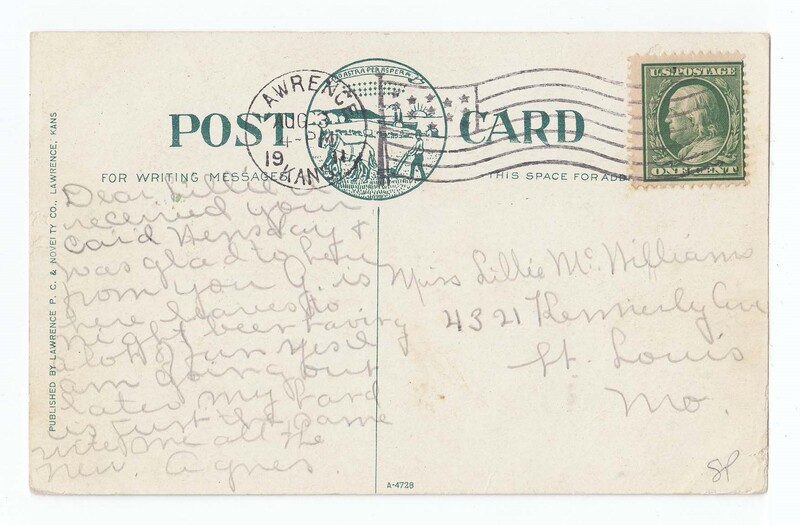 POST CARD
AD ASTRA PER ASPERA
LAWRENCE
AUG 3
4-PM
19
KANS
U.S. POSTAGE
ONE CENT
FOR WRITING MESSAGES
THIS SPACE FOR ADD
PUBLISHED BY LAWRENCE P. C. & NOVELTY CO., LAWRENCE, KANS
Dear Lillie
received your
card &
was glad to hear
from you G. is
here leaves to
night been having
a lot of fun yes I
am going out
later my hand
is just the same
write me all the
new. Agnes.
Miss Lillie McWilliams
4321 Kennerly Ave
St. Louis
Mo.
A-4728